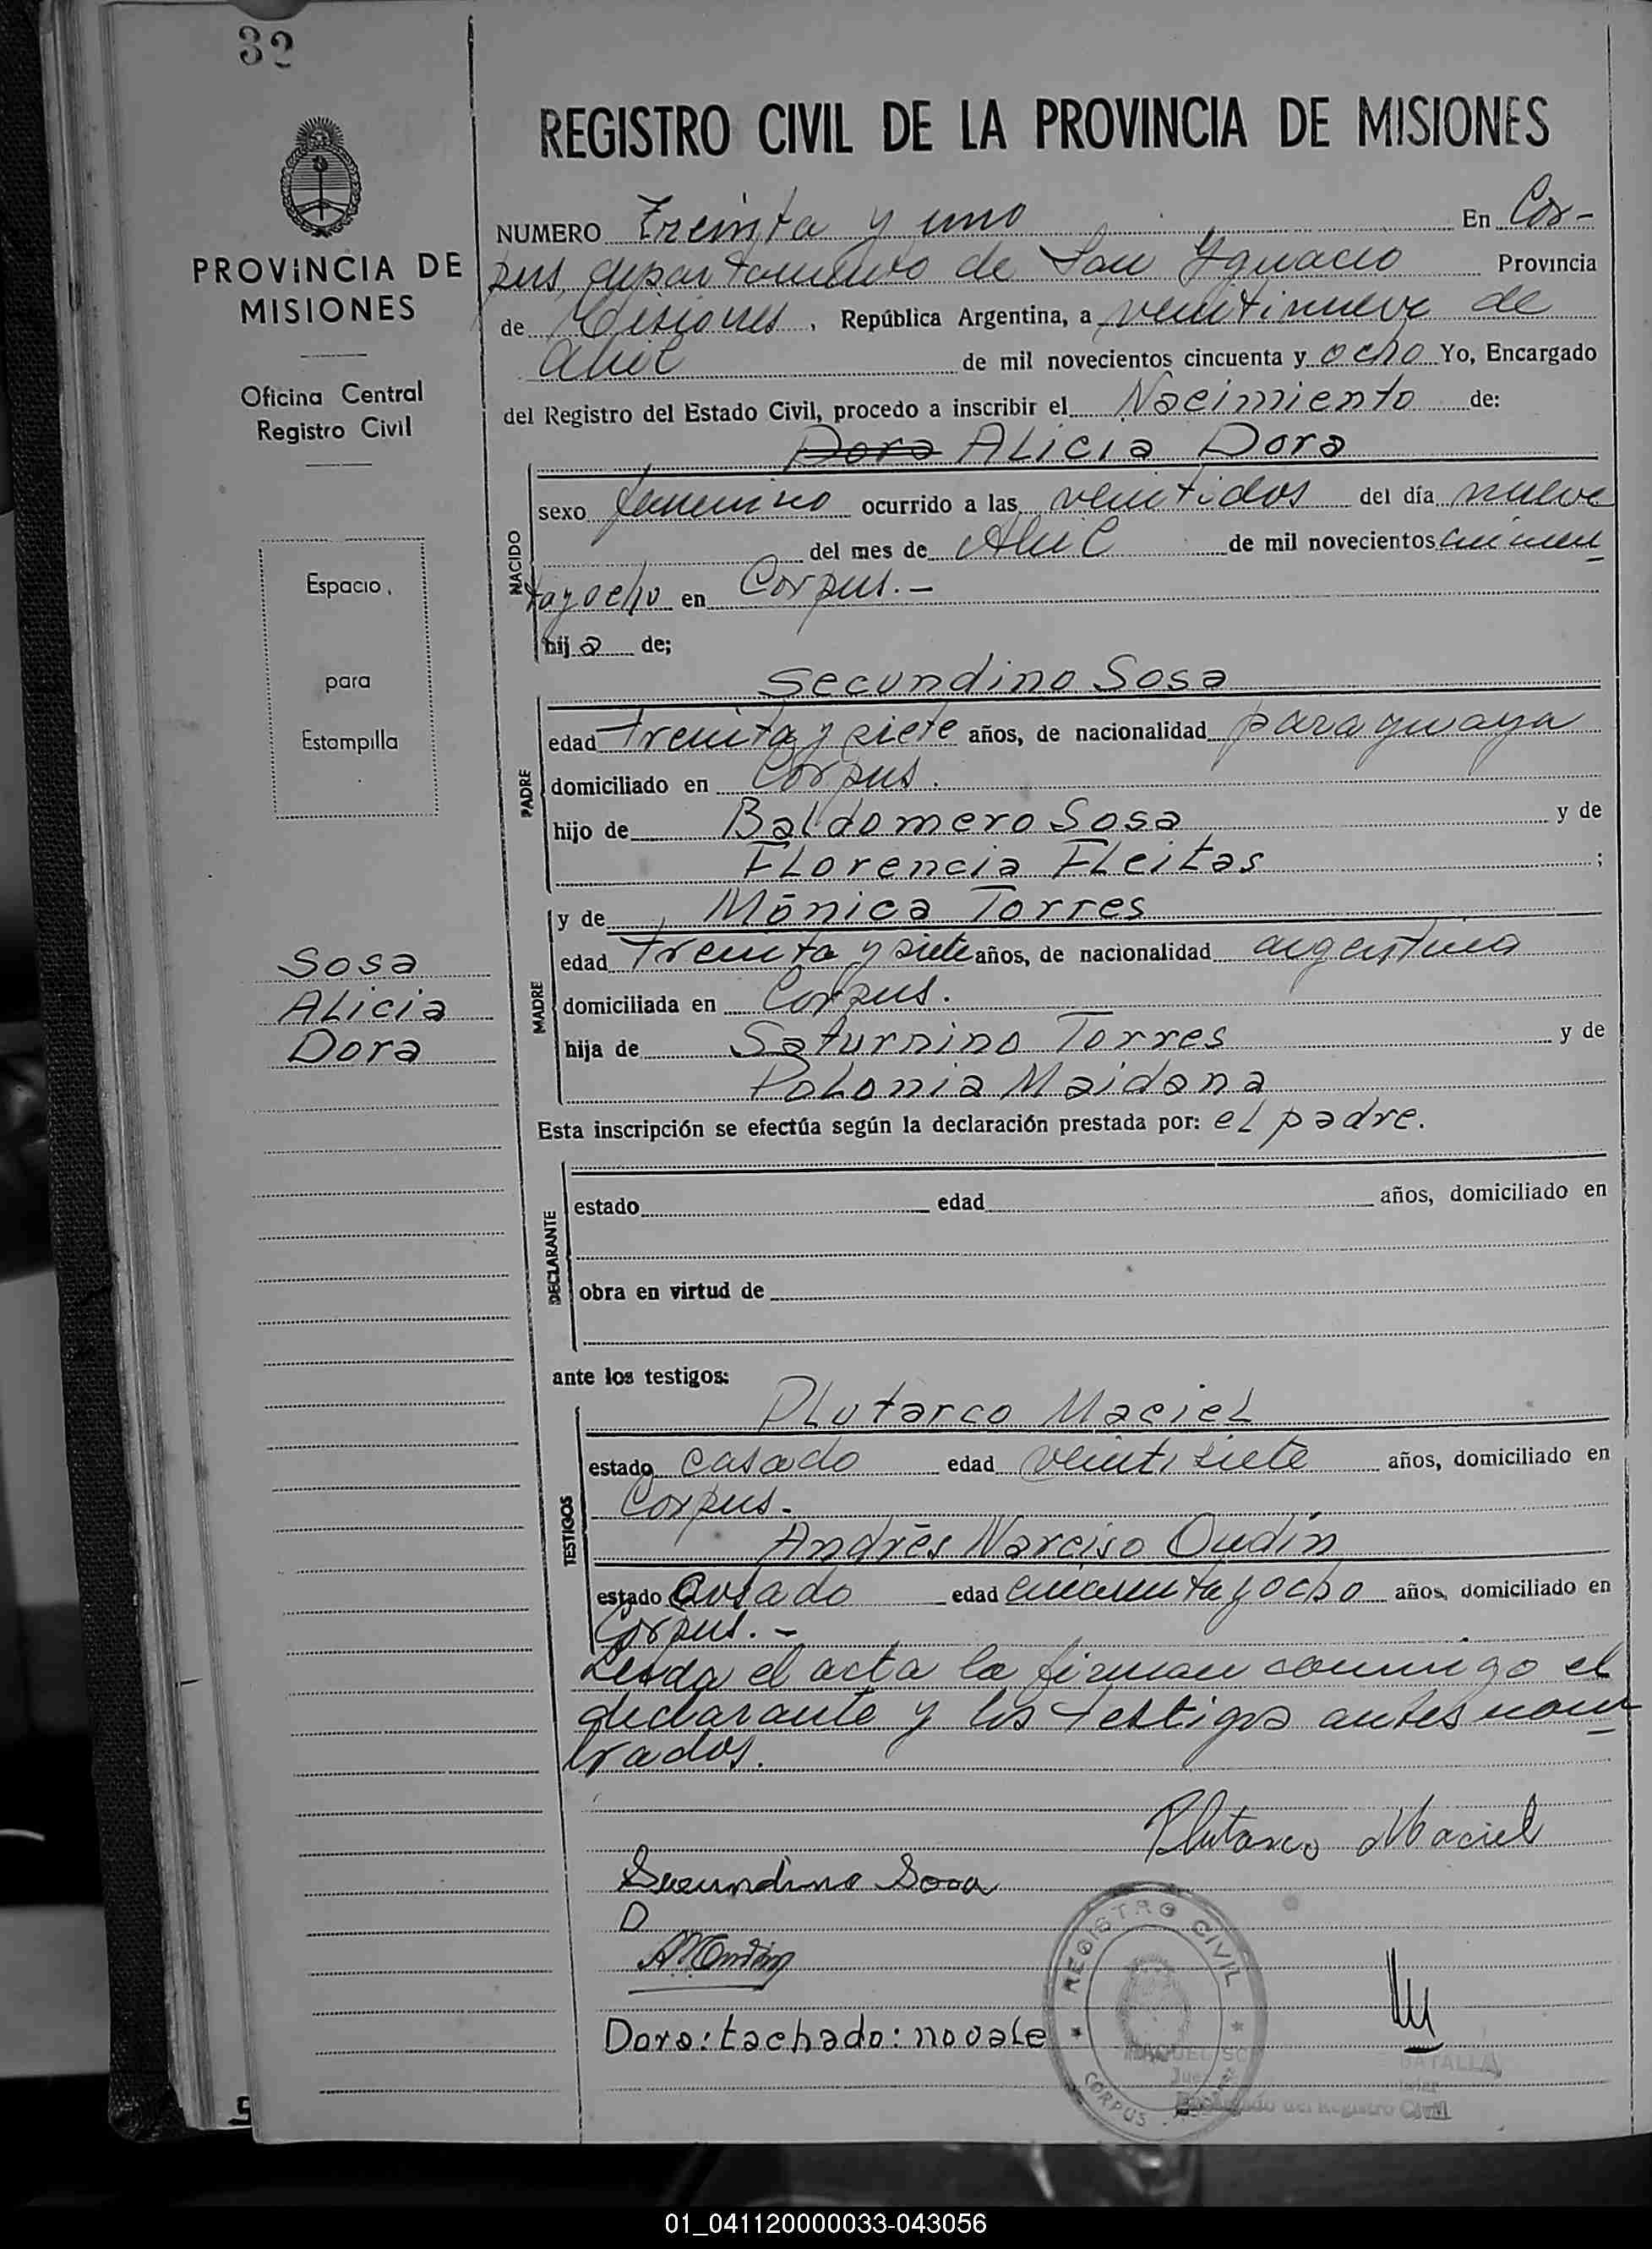 32
REGISTRO CIVIL DE LA PROVINCIA DE MISIONES
PROVINCIA DE
MISIONES
Oficina Central
Registro Civil
Espacio
para
Estampilla
Sosa
Alicia
Dora
NUMERO Treinta y uno En Cor-
pus, departamento de San Ygnacio Provincia
de Misiones, República Argentina, a veintinueve de
abril de mil novecientos cincuenta y ocho Yo, Encargado
del Registro del Estado Civil, procedo a inscribir el Nacimiento de:
Dora Alicia Dora
NACIDO
sexo femenino ocurrido a las veintidos del día nueve
del mes de Abril de mil novecientos cincuen
tayocho en Corpus.-
hija de;
Secundino Sosa
PADRE
edad treinta y siete años, de nacionalidad paraguaya
domiciliado en Corpus.
hijo de Baldomero Sosa y de
Florencia Fleitas ;
MADRE
y de Mónica Torres
edad treinta y siete años, de nacionalidad argentina
domiciliada en Corpus.
hija de Saturnino Torres y de
Polonia Maidana
Esta inscripción se efectúa según la declaración prestada por: el padre.
DECLARANTE
estado edad años, domiciliado en
obra en virtud de
ante los testigos:
TESTIGOS
Plutarco Maciel
estado casado edad veintisiete años, domiciliado en
Corpus.-
Andrés Narciso Oudín
estado casado edad cincuentayocho años, domiciliado en
Corpus.-
Leida el acta la firman conmigo el
declarante y los testigos antes nom
brados.
Plutarco Maciel
Secundino Sosa
D
Dora: tachado: no vale
REGISTRO CIVIL
CORPUS
BATALLA
del Registro Civil
01_041120000033-043056